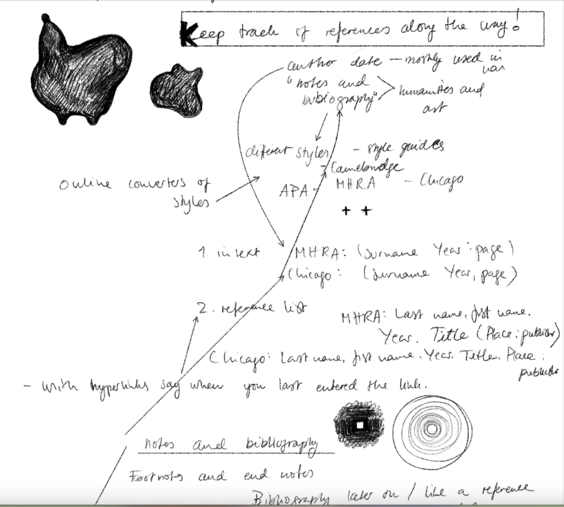 Keep track of references along the way!
author date – mostly used in
"notes and
bibliography"
humanities and
art
different styles – style guides
- Cambridge
Online converters of
styles
APA - MHRA - Chicago
+ +
1. in text
MHRA: (Surname Year: page)
Chicago: (Surname Year, page)
2. reference list
MHRA: Last name, first name.
Year. Title (Place: publisher)
Chicago: Last name, first name. Year. Title. Place:
publisher
- With hyperlinks say when you last entered the link.
notes and bibliography
Footnotes and end notes
Bibliography later on / like a reference